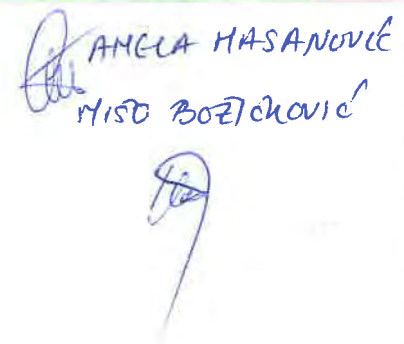 AMELA HASANOVIĆ
MIŠO BOŽIČKOVIĆ